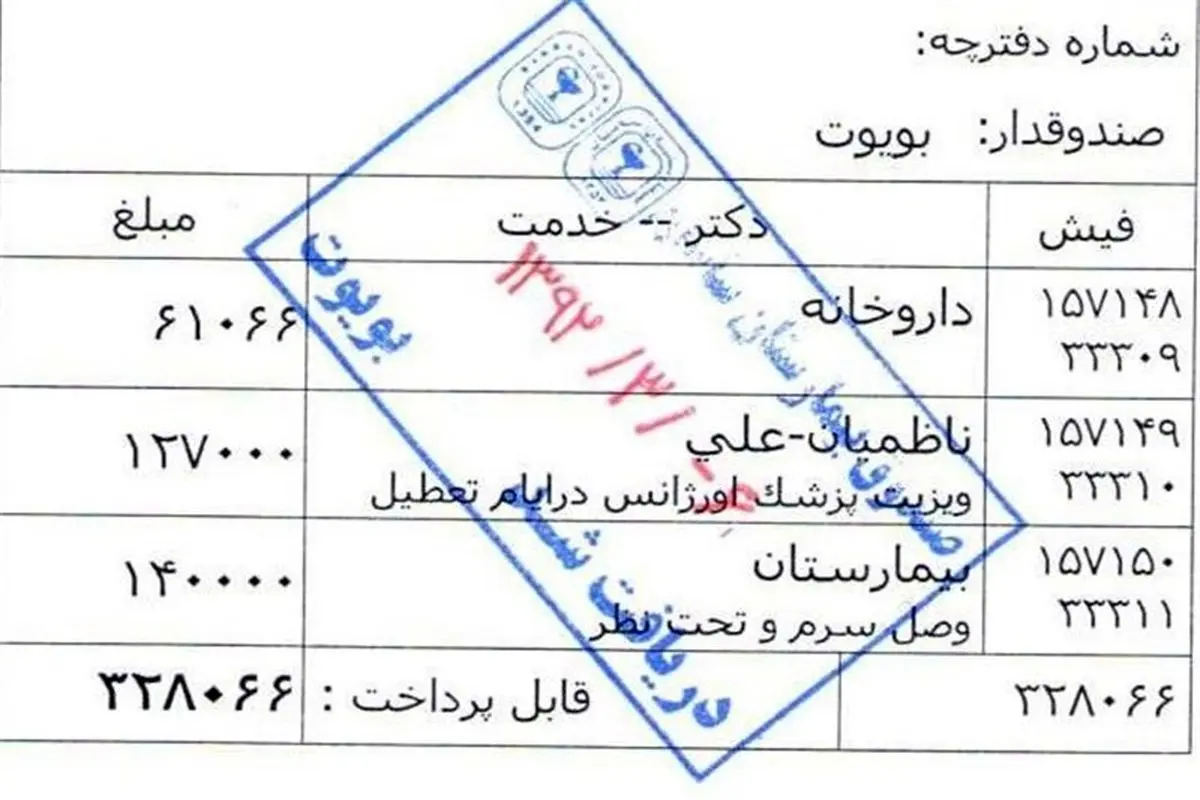 شماره دفترچه:
صندوقدار: بویوت
فیش دکتر -- خدمت مبلغ
۱۵۷۱۴۸ داروخانه ۶۱۰۶۶
۳۳۳۰۹
۱۵۷۱۴۹ ناظمیان-علي ۱۲۷۰۰۰
۳۳۳۱۰ ویزیت پزشك اورژانس درایام تعطیل
۱۵۷۱۵۰ بیمارستان ۱۴۰۰۰۰
۳۳۳۱۱ وصل سرم و تحت نظر
۳۲۸۰۶۶ قابل پرداخت : ۳۲۸۰۶۶
صندوق بیمارستان
۱۳۹۲/۳/-۴
دریافت شد
بویوت